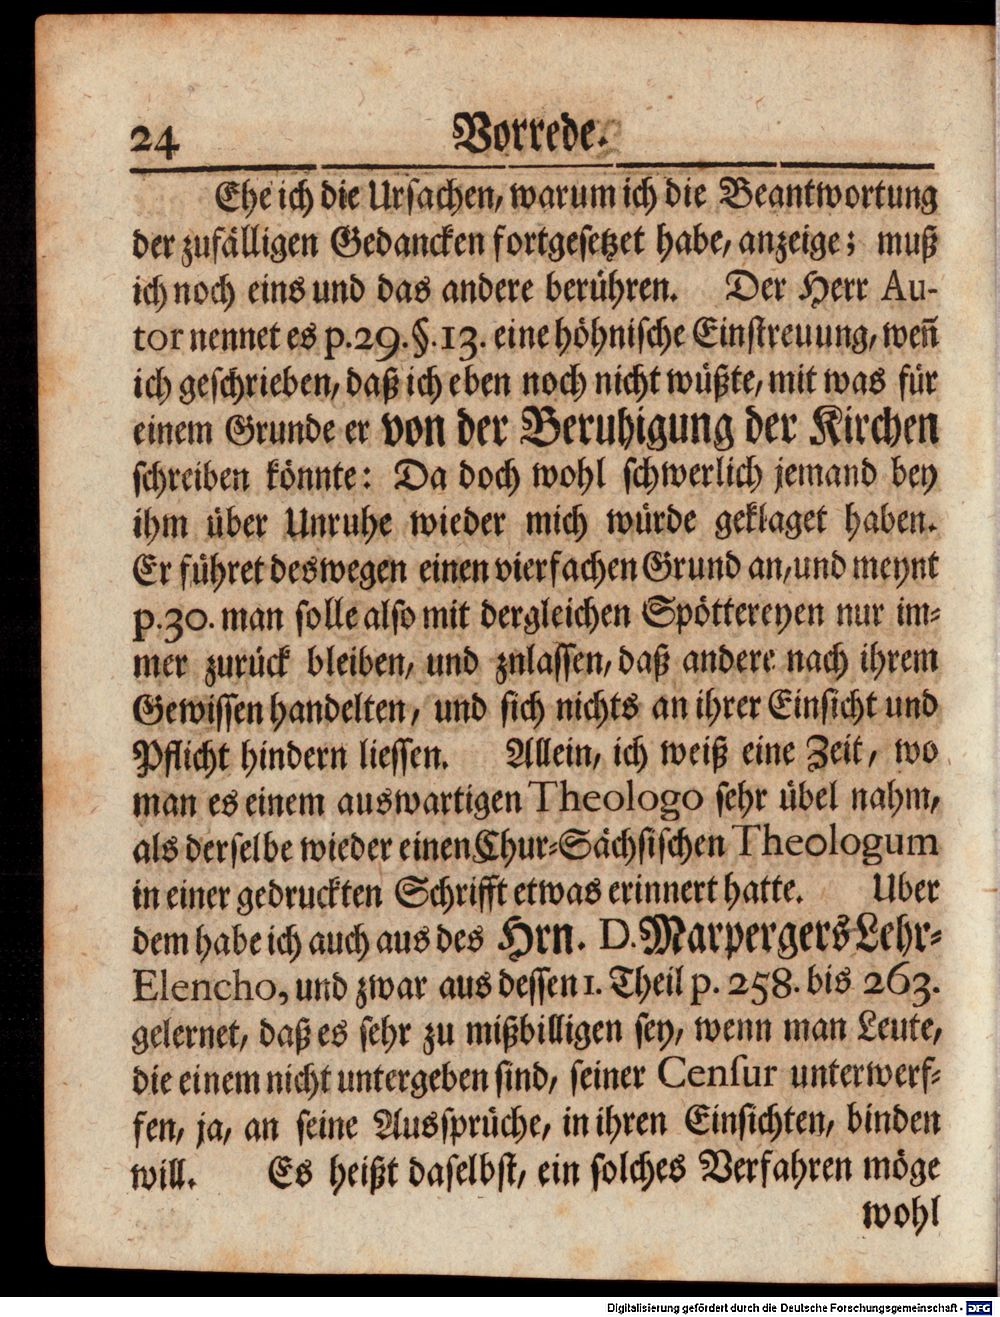 24 Vorrede.
Ehe ich die Ursachen, warum ich die Beantwortung
der zufälligen Gedancken fortgesetzet habe, anzeige; muß
ich noch eins und das andere berühren. Der Herr Au-
tor nennet es p. 29. §. 13. eine höhnische Einstreuung, weñ
ich geschrieben, daß ich eben noch nicht wüßte, mit was für
einem Grunde er von der Beruhigung der Kirchen
schreiben könnte: Da doch wohl schwerlich jemand bey
ihm über Unruhe wieder mich würde geklaget haben.
Er führet deswegen einen vierfachen Grund an, und meynt
p. 30. man solle also mit dergleichen Spöttereyen nur im-
mer zurück bleiben, und znlassen, daß andere nach ihrem
Gewissen handelten, und sich nichts an ihrer Einsicht und
Pflicht hindern liessen. Allein, ich weiß eine Zeit, wo
man es einem auswartigen Theologo sehr übel nahm,
als derselbe wieder einen Chur-Sächsischen Theologum
in einer gedruckten Schrifft etwas erinnert hatte. Uber
dem habe ich auch aus des Hrn. D. Marpergers Lehr-
Elencho, und zwar aus dessen 1. Theil p. 258. bis 263.
gelernet, daß es sehr zu mißbilligen sey, wenn man Leute,
die einem nicht untergeben sind, seiner Censur unterwerf-
fen, ja, an seine Aussprüche, in ihren Einsichten, binden
will. Es heißt daselbst, ein solches Verfahren möge
wohl
Digitalisierung gefördert durch die Deutsche Forschungsgemeinschaft - DFG